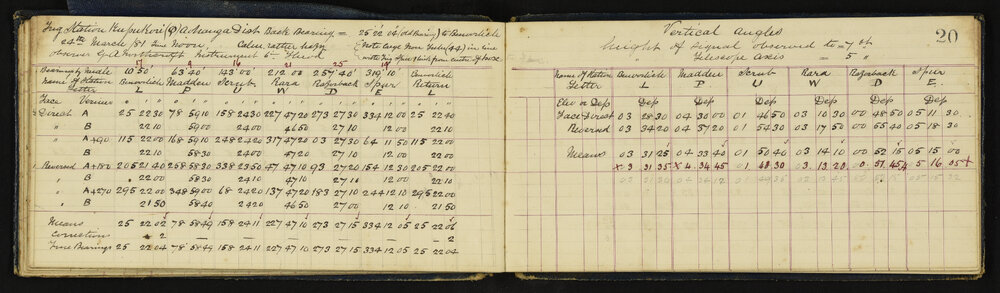 Trig Station Kupukori (P) Whanga Dist Back Bearing = 25° 22' 04" (old Bearing) to Bunarlich
24th March /81 Time Noon, Calm, rather hazy (Note large fern Tube (44) in line
observer G.A. Northcroft Instrument 6in Theod
17 9 16 21 25 19
Bearing by Needle 10 50 63 40 143 00 212 00 257 40 319 10 Bunarlich
Name of Station Bunarlich Madden Scrub Rara Razorback Spur Return
Letter L P U W D E L
Face Vernier
Direct A 25 22 30 78 59 10 158 24 30 227 47 20 273 27 30 334 12 00 25 22 40
" B 22 10 59 00 24 00 46 50 27 10 12 00 22 10
" A+90 115 22 00 168 59 10 248 24 20 317 47 20 03 27 30 64 11 50 115 22 00
" B 22 10 58 30 24 00 47 20 27 10 12 00 22 00
Reversed A+180 205 21 40 258 58 30 338 23 50 47 47 10 93 27 20 154 12 30 205 22 00
" B 22 10 58 30 24 10 47 10 27 10 12 10 22 10
" A+270 295 22 00 348 59 00 68 24 20 137 47 20 183 27 10 244 12 10 295 22 00
" B 21 50 58 40 24 20 46 50 27 00 12 00 21 50
Means 25 22 02 78 58 49 158 24 11 227 47 10 273 27 15 334 12 05 25 22 06
Corrections 2 — — — — — 2
True Bearings 25 22 04 78 58 49 158 24 11 227 47 10 273 27 15 334 12 05 25 22 04
Vertical Angles
20
height of signal observed to = 7 ft
" " Telescope axis = 5 "
Name of Station Bunarlich Madden Scrub Rara Razorback Spur
Letter L P U W D E
Elev or Dep Dep Dep Dep Dep Dep Dep
Face Direct 03 28 30 04 30 00 01 46 50 03 10 30 00 48 50 05 11 30
Reversed 03 34 20 04 37 20 01 54 30 03 17 50 00 55 40 05 18 30
Means 03 31 25 04 33 40 01 50 40 03 14 10 00 52 15 05 15 00
x 3 31 35 x 4 34 45 01 48 30 3 13 20 0 51 45 5 16 05 x